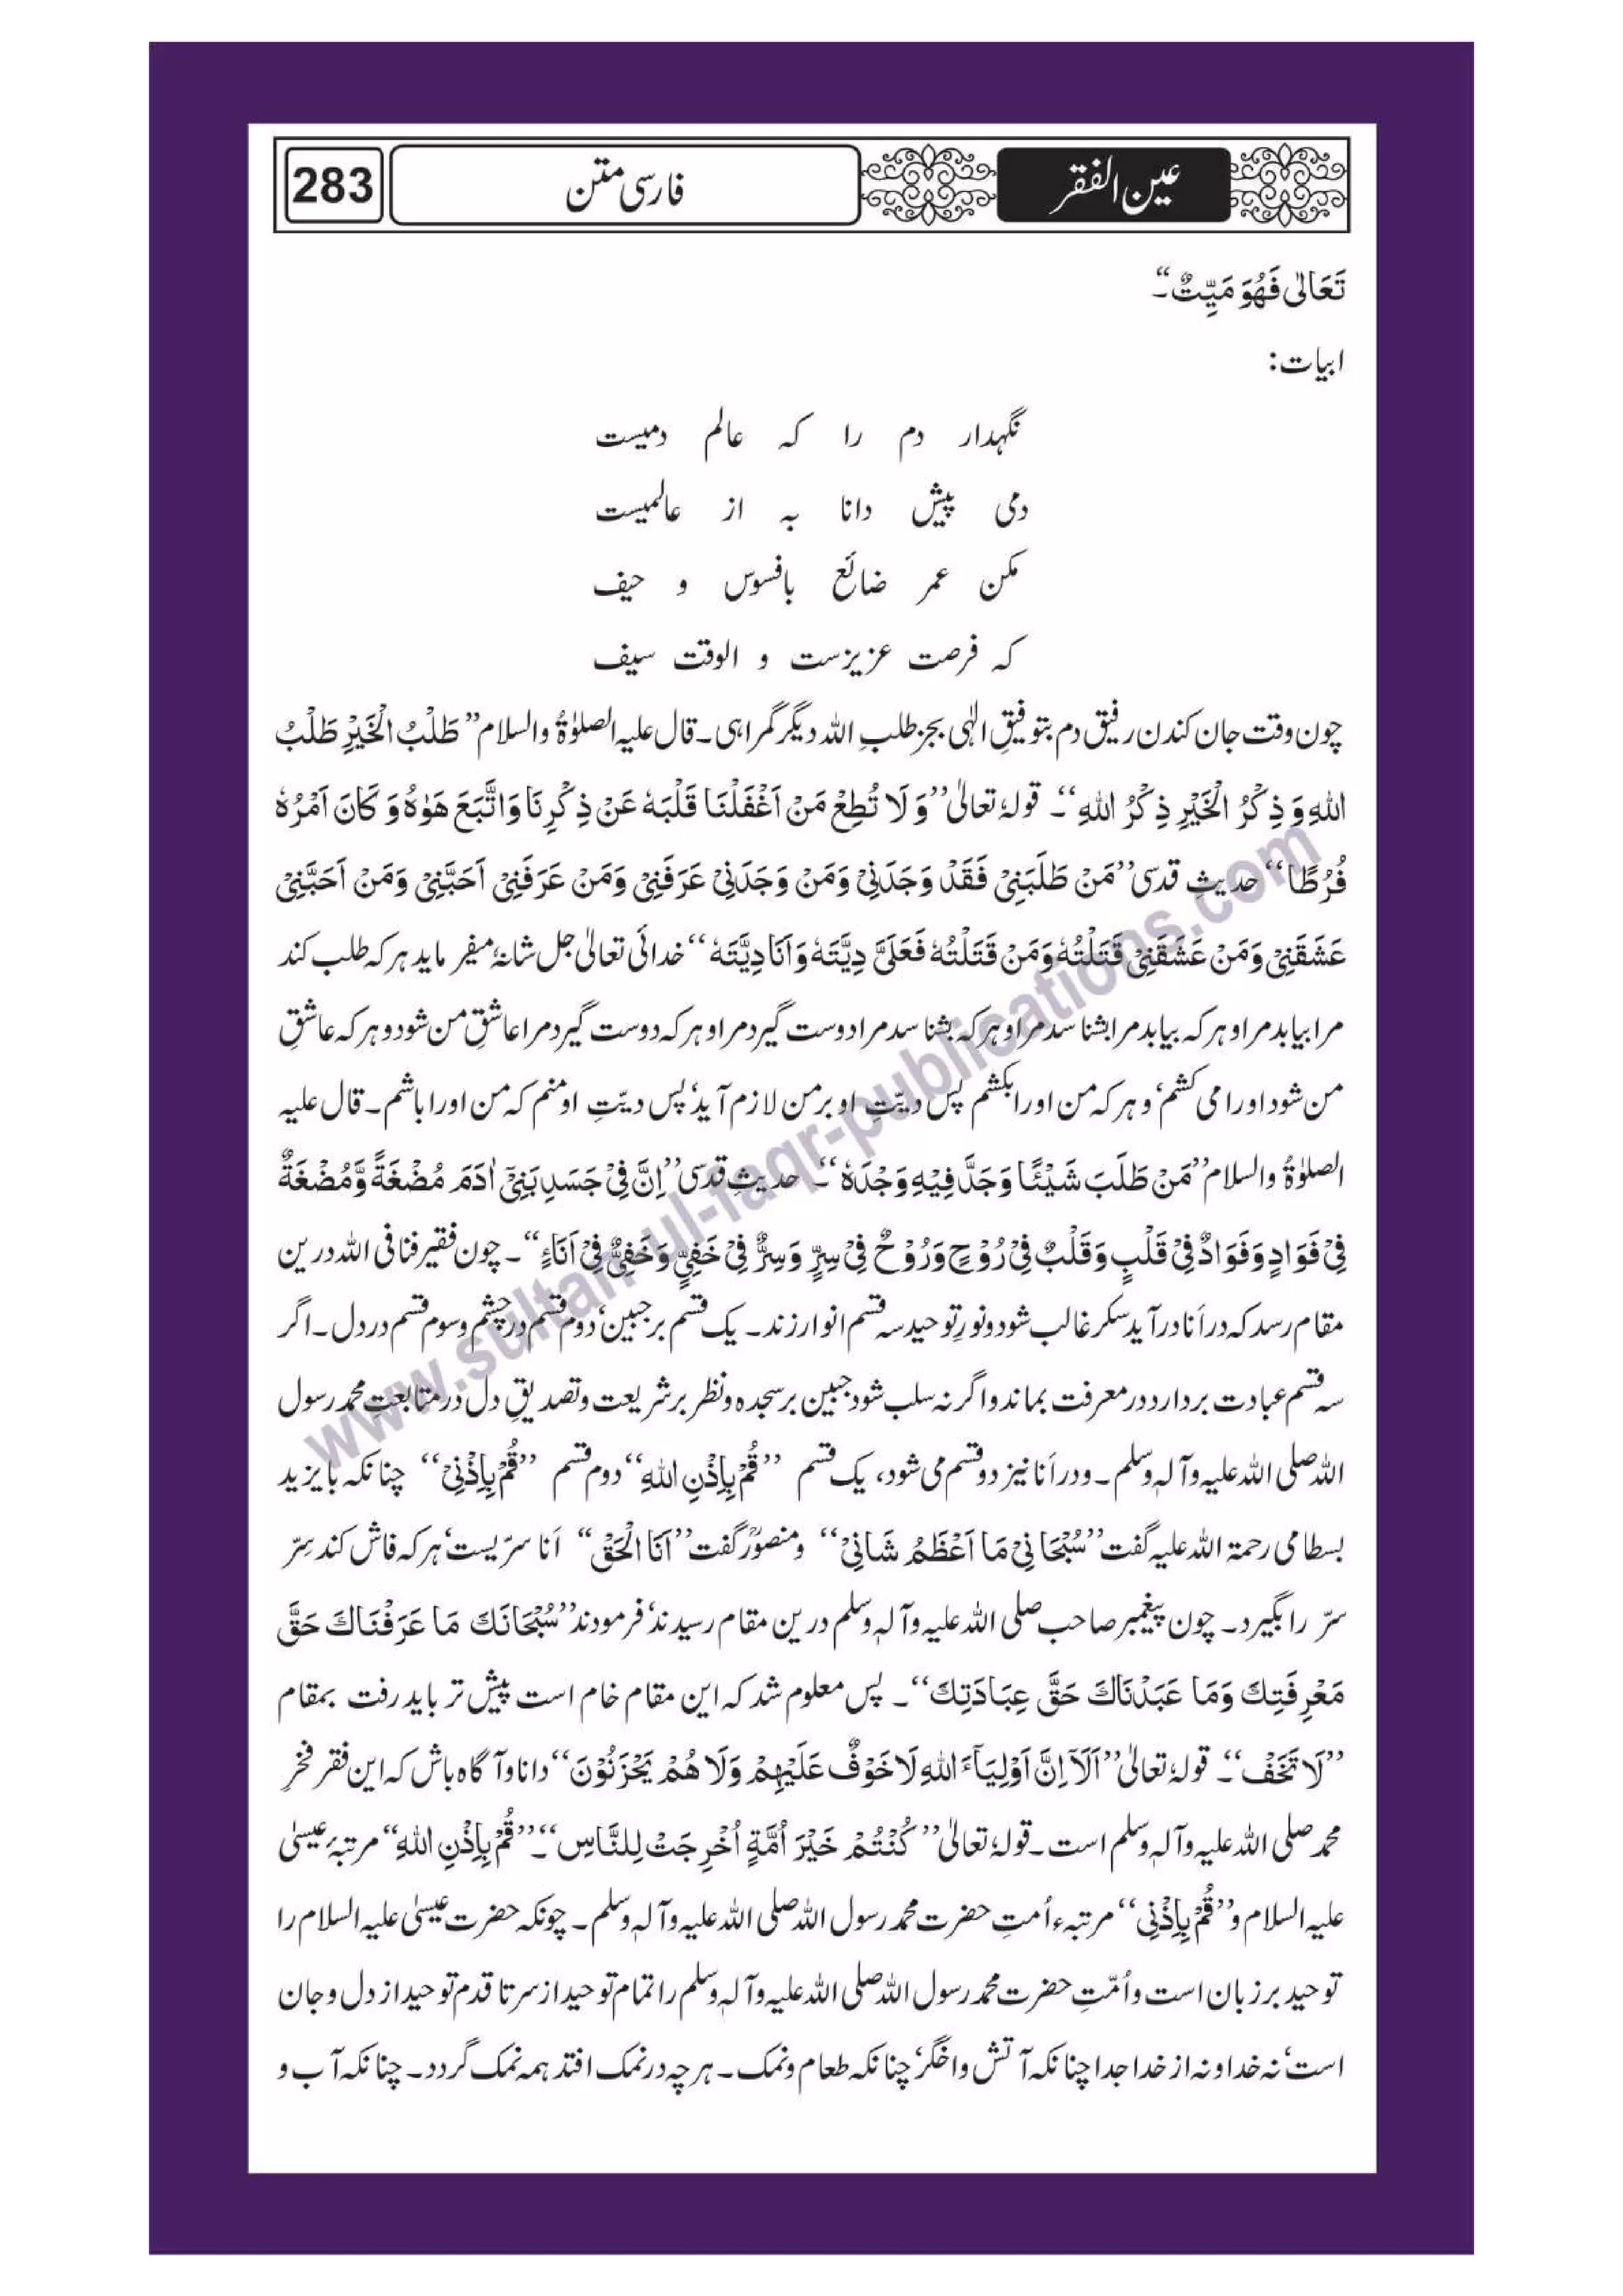 عین الفقر
فارسی متن
283
تَعَالٰی فَهُوَ مَیِّتٌ“۔
ابیات:
نگہدار دم را کہ عالم دمیست
دمی پیش دانا بہ از عالمیست
مکن عمر ضائع بافسوس و حیف
کہ فرصت عزیزست و الوقت سیف
چون وقت جان کندن رفیق دم بتوفیقِ الٰہی بجز طلبِ اللہ دیگر گمراہی۔ قال علیہ الصلوٰۃُ والسلام ”طَلْبُ الْخَیْرِ طَلْبُ
اللهِ وَ ذِکْرُ الْخَیْرِ ذِکْرُ اللهِ“۔ قولہٗ تعالیٰ ”وَ لَا تُطِعْ مَنْ اَغْفَلْنَا قَلْبَهٗ عَنْ ذِکْرِنَا وَاتَّبَعَ هَوٰهُ وَ کَانَ اَمْرُهٗ
فُرُطًا“ حدیثِ قدسی ”مَنْ طَلَبَنِیْ فَقَدْ وَجَدَنِیْ وَمَنْ وَجَدَنِیْ عَرَفَنِیْ وَمَنْ عَرَفَنِیْ اَحَبَّنِیْ وَمَنْ اَحَبَّنِیْ
عَشَقَنِیْ وَمَنْ عَشَقَنِیْ قَتَلْتُهٗ وَمَنْ قَتَلْتُهٗ فَعَلَیَّ دِیَّتَهٗ وَاَنَا دِیَّتَهٗ“ خدائی تعالیٰ جل شانہٗ میفرماید ہر کہ طلب کند
مرا بیابد مرا و ہر کہ بیابد مرا بشناسد مرا و ہر کہ بشناسد مرا دوست گیرد مرا و ہر کہ دوست گیرد مرا عاشقِ من شود و ہر کہ عاشقِ
من شود اورا می کشم‘ و ہر کہ من اورا بکشم پس دیّتِ او بر من لازم آید‘ پس دیّتِ او منم کہ من اورا باشم۔ قال علیہ
الصلوٰۃُ والسلام ”مَنْ طَلَبَ شَیْئًا وَجَدَّ فِیْهِ وَجَدَهٗ“۔ حدیثِ قدسی ”اِنَّ فِیْ جَسَدِ بَنِیْٓ اٰدَمَ مُضْغَةً وَّمُضْغَةٌ
فِیْ فَوَادٍ وَفَوَادٌ فِیْ قَلْبٍ وَقَلْبٌ فِیْ رُوْحٍ وَرُوْحٌ فِیْ سِرٍّ وَسِرٌّ فِیْ خَفِیٍّ وَخَفِیٌّ فِیْ اَنَاءٍ“۔ چون فقیر فنا فی اللہ درین
مقام رسد کہ در اَنا در آید سکر غالب شود و نورِ توحید سہ قسم انوار زند۔ یک قسم بر جبین‘ دوم قسم در چشم و سوم قسم در دل۔ اگر
سہ قسم عبادت بردارد در معرفت بماند و اگر نہ سلب شود جبین بر سجدہ و نظر بر شریعت و تصدیقِ دل در متابعتِ محمد رسول
اللہ صلی اللہ علیہ وآلہٖ وسلم۔ و در اَنا نیز دو قسم می شود، یک قسم ”قُمْ بِاِذْنِ اللهِ“ دوم قسم ”قُمْ بِاِذْنِیْ“ چنانکہ بایزید
بسطامی رحمۃ اللہ علیہ گفت ”سُبْحَانِیْ مَا اَعْظَمُ شَانِیْ“ و منصورؒ گفت ”اَنَا الْحَقْ“ اَنا سرّیست‘ ہر کہ فاش کند سِرّ
سرّ را بگیرد۔ چون پیغمبر صاحب صلی اللہ علیہ وآلہٖ وسلم درین مقام رسیدند‘ فرمودند ”سُبْحَانَكَ مَا عَرَفْنَاكَ حَقَّ
مَعْرِفَتِكَ وَمَا عَبَدْنَاكَ حَقَّ عِبَادَتِكَ“۔ پس معلوم شد کہ این مقام خام است پیش تر باید رفت بمقام
”لَا تَخَفْ“۔ قولہٗ تعالیٰ ”اَلَآ اِنَّ اَوْلِیَآءَ اللهِ لَا خَوْفٌ عَلَیْهِمْ وَلَا هُمْ یَحْزَنُوْنَ“ دانا و آگاہ باش کہ این فقر فخرِ
محمد صلی اللہ علیہ وآلہٖ وسلم است۔ قولہٗ تعالیٰ ”کُنْتُمْ خَیْرَ اُمَّةٍ اُخْرِجَتْ لِلنَّاسِ“۔ ”قُمْ بِاِذْنِ اللهِ“ مرتبۂ عیسیٰ
علیہ السلام و ”قُمْ بِاِذْنِی“ مرتبہء اُمتِ حضرت محمد رسول اللہ صلی اللہ علیہ وآلہٖ وسلم۔ چونکہ حضرت عیسیٰ علیہ السلام را
توحید بر زبان است و اُمّتِ حضرت محمد رسول اللہ صلی اللہ علیہ وآلہٖ وسلم را تمام توحید از سر تا قدم توحید از دل و جان
است‘ نہ خدا و نہ از خدا جدا چنانکہ آتش و اخگر‘ چنانکہ طعام و نمک۔ ہر چہ در نمک افتد ہمہ نمک گردد۔ چنانکہ آب و
www.sultan-ul-faqr-publications.com